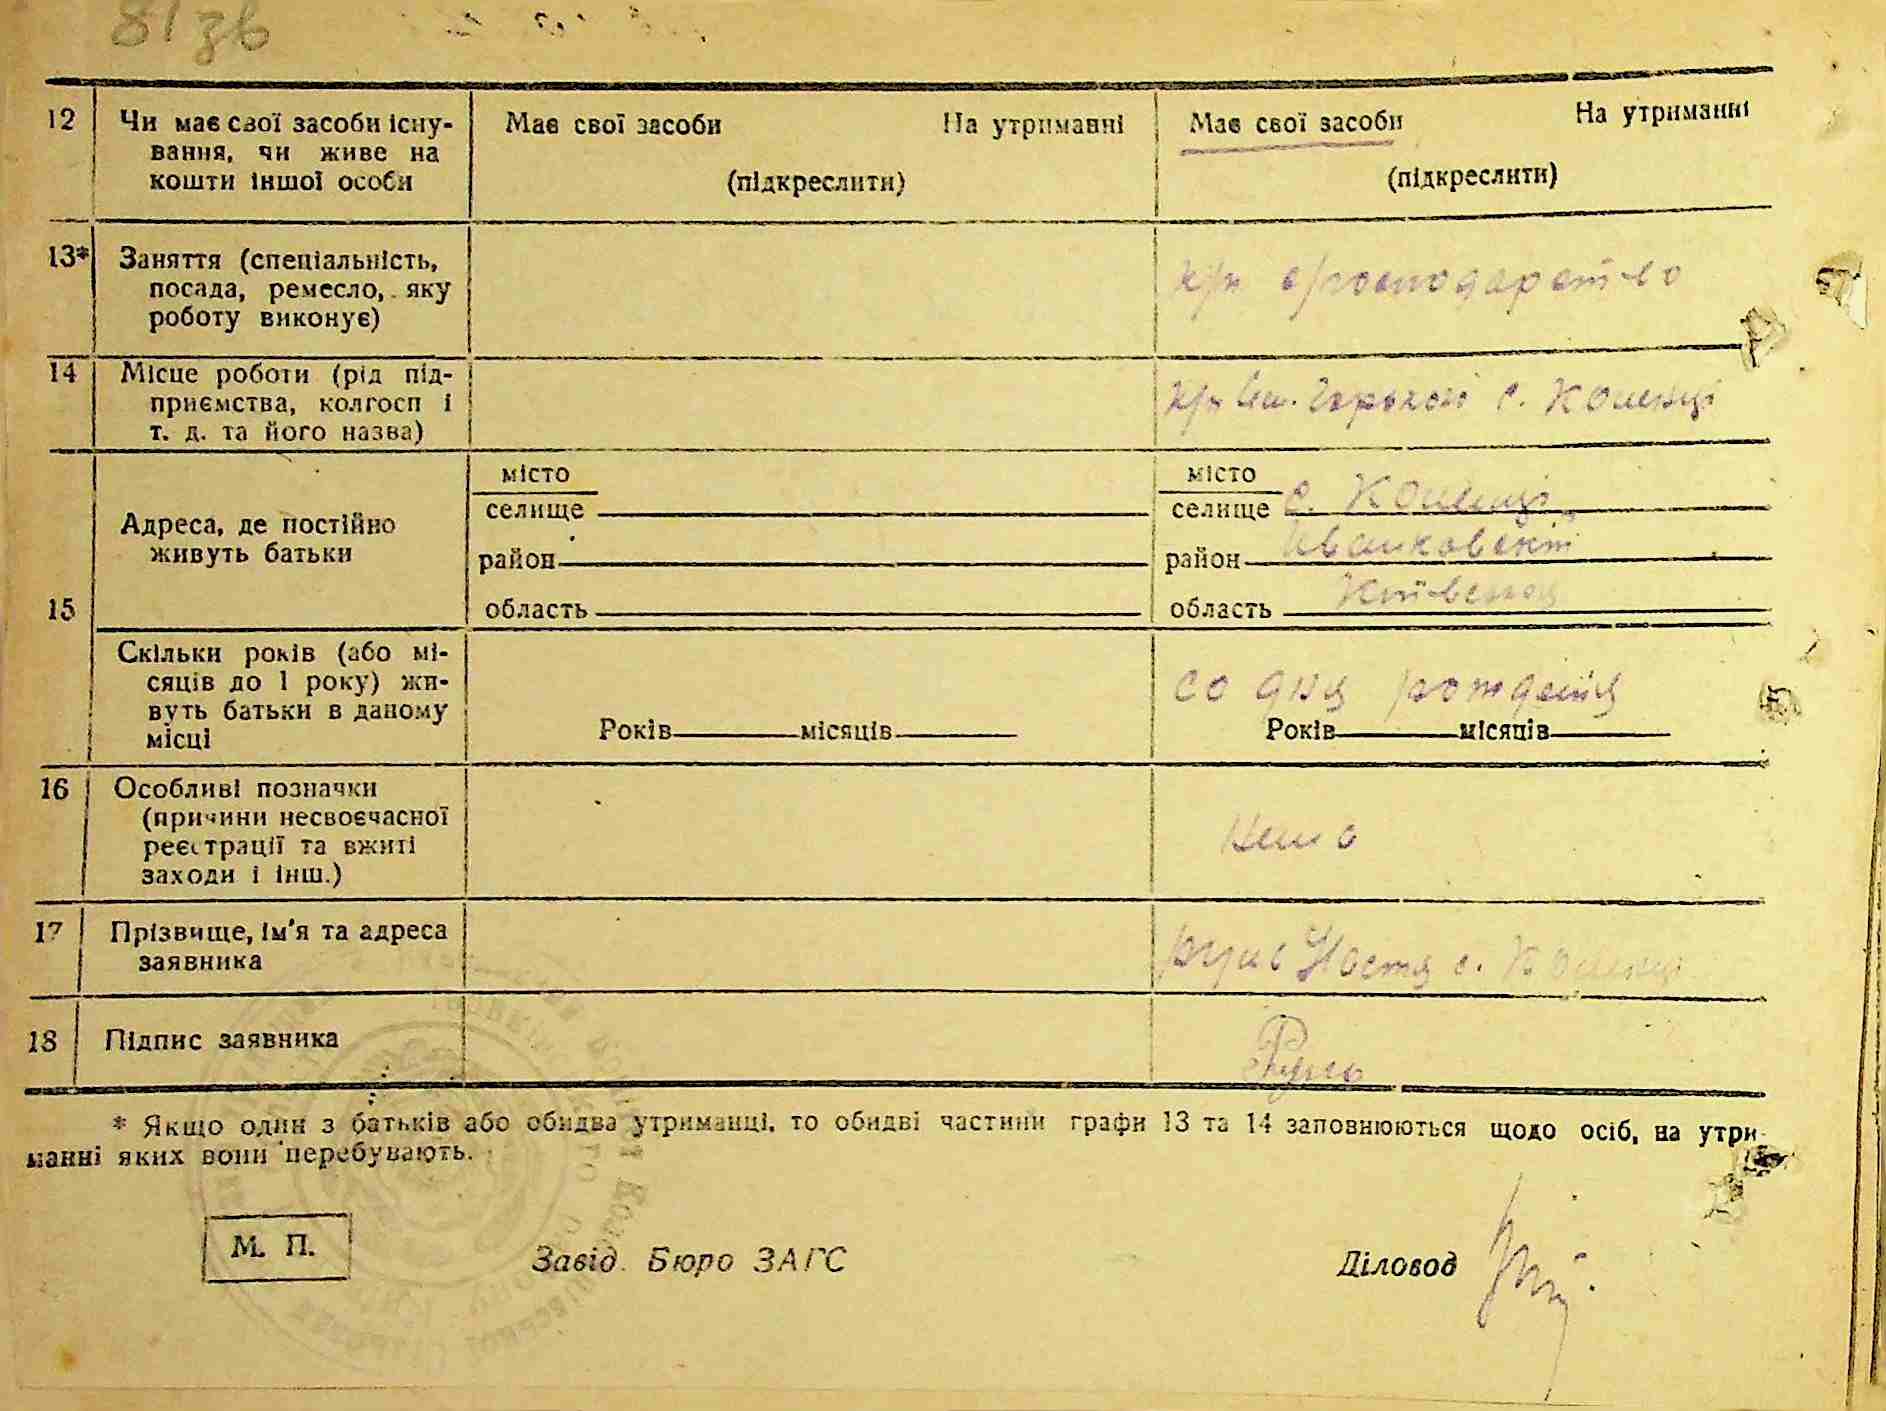 81зв
12 Чи має свої засоби існу- Має свої засоби На утриманні Має свої засоби На утриманні
вання, чи живе на
кошти іншої особи (підкреслити) (підкреслити)
13* Заняття (спеціальність,
посада, ремесло, яку
роботу виконує) к/п с/господарство
14 Місце роботи (рід під-
приємства, колгосп і к/п им. Горького с. Коленці
т. д. та його назва)
15 Адреса, де постійно
живуть батьки
місто місто
селище селище с. Коленці
район район Иванковский
область область Київська
Скільки років (або мі-
сяців до 1 року) жи- со дня рождения
вуть батьки в даному
місці Років місяців Років місяців
16 Особливі позначки
(причини несвоєчасної
реєстрації та вжиті
заходи і інш.)
17 Прізвище, ім'я та адреса
заявника Руль Настя с. Коленці
18 Підпис заявника Руль
* Якщо один з батьків або обидва утриманці, то обидві частини графи 13 та 14 заповнюються щодо осіб, на утри-
манні яких вони перебувають.
М. П. Завід. Бюро ЗАГС Діловод